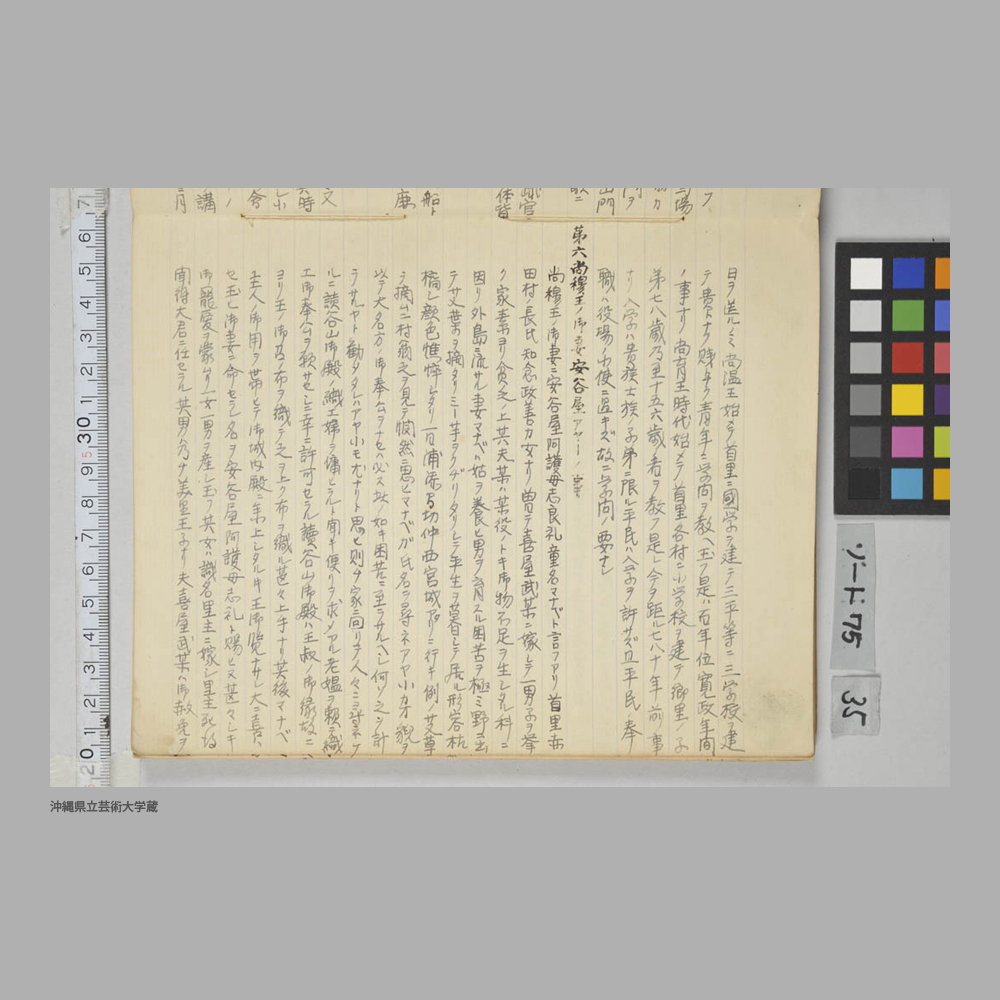 日ヲ送ルノミ尚温王始メテ首里ニ國学ヲ建テ三平等ニ三学校ヲ建
テ貴トナク賤トナク青年ニ学向ヲ教ヘ玉フ是ハ百年位寛政年間
ノ事ナリ尚育王時代始メテ首里各村ニ小学校ヲ建テ郷里ノ子
弟七八歳乃至十五六歳ノ者ヲ教フ是レ今ヲ距ル七八十年前ノ事
ナリ入学ハ貴族士族ノ子弟ニ限ル平民ハ入学ヲ許サズ且平民ノ奉
職ハ役場ノ小使ニ過キズ故ニ学向ノ要ナシ
第六尚穆王ノ御妻安谷屋アヤーノ事
尚穆王ノ御妻ニ安谷屋阿護母志良礼童名マナベト言フアリ首里赤
田村ノ長氏知念政善ノ女ナリ曽テ喜屋武某ニ嫁シテ一男子ヲ挙
ク家素ヨリ貧乏ノ上其夫某ハ某役ノトキ御物不足ヲ生シタル科ニ
因リ外島ニ流サル妻マナベハ姑ヲ養ヒ男ヲ育スル困苦ヲ極ミ野ニ出
テ艾葉ヲ摘タリミー芋ヲクヂリタリシテ平生ヲ暮シテ居ル形容枯
槁シ顔色憔悴シタリ一日浦添間切仲西宮城邊ニ行キ例ノ艾草
ヲ摘ムニ村翁之ヲ見テ惘然ニ思ヒマナベガ氏名ヲ尋ネアヤ小カ才貌ヲ
以テ大名方ノ御奉公ヲナセハ必ス斯ノ如キ困苦ニ至ラサルヘシ何ソ之ヲ計
ラサルヤト勧メタレハアヤ小モ尤ナリト思ヒ則チ家ニ向リテ人々ニ
ルニ讀谷山御殿ノ織工婦ヲ傭ヒラルト聞キ便リヲ求メアル老媼ヲ頼ミ織
工御奉公ヲ願サセシニ幸ニ許可セラル讀谷山御殿ハ王叔ノ御縁故ニ
ヨリ王ノ御召布ヲ織テ之ヲ上ク布ヲ織ル甚々上手ナリ其後マナベ
主人ノ御用ヲ帯ヒテ御城内殿ニ参上シタルトキ王御覧ナサレ大ニ喜ハ
セ玉ヒ御妻ニ命セラレ名ヲ安谷屋阿護母志礼ト賜ヒ又甚々シキ
御寵愛ヲ蒙ムリ一女一男ヲ産シ玉フ其女ハ識名里主ニ嫁シ里主死後
聞得大君ニ仕セラル其男乃チ美里王子ナリ夫喜屋武某ハ御赦免ヲ
ゾード75
35
沖縄県立芸術大学蔵